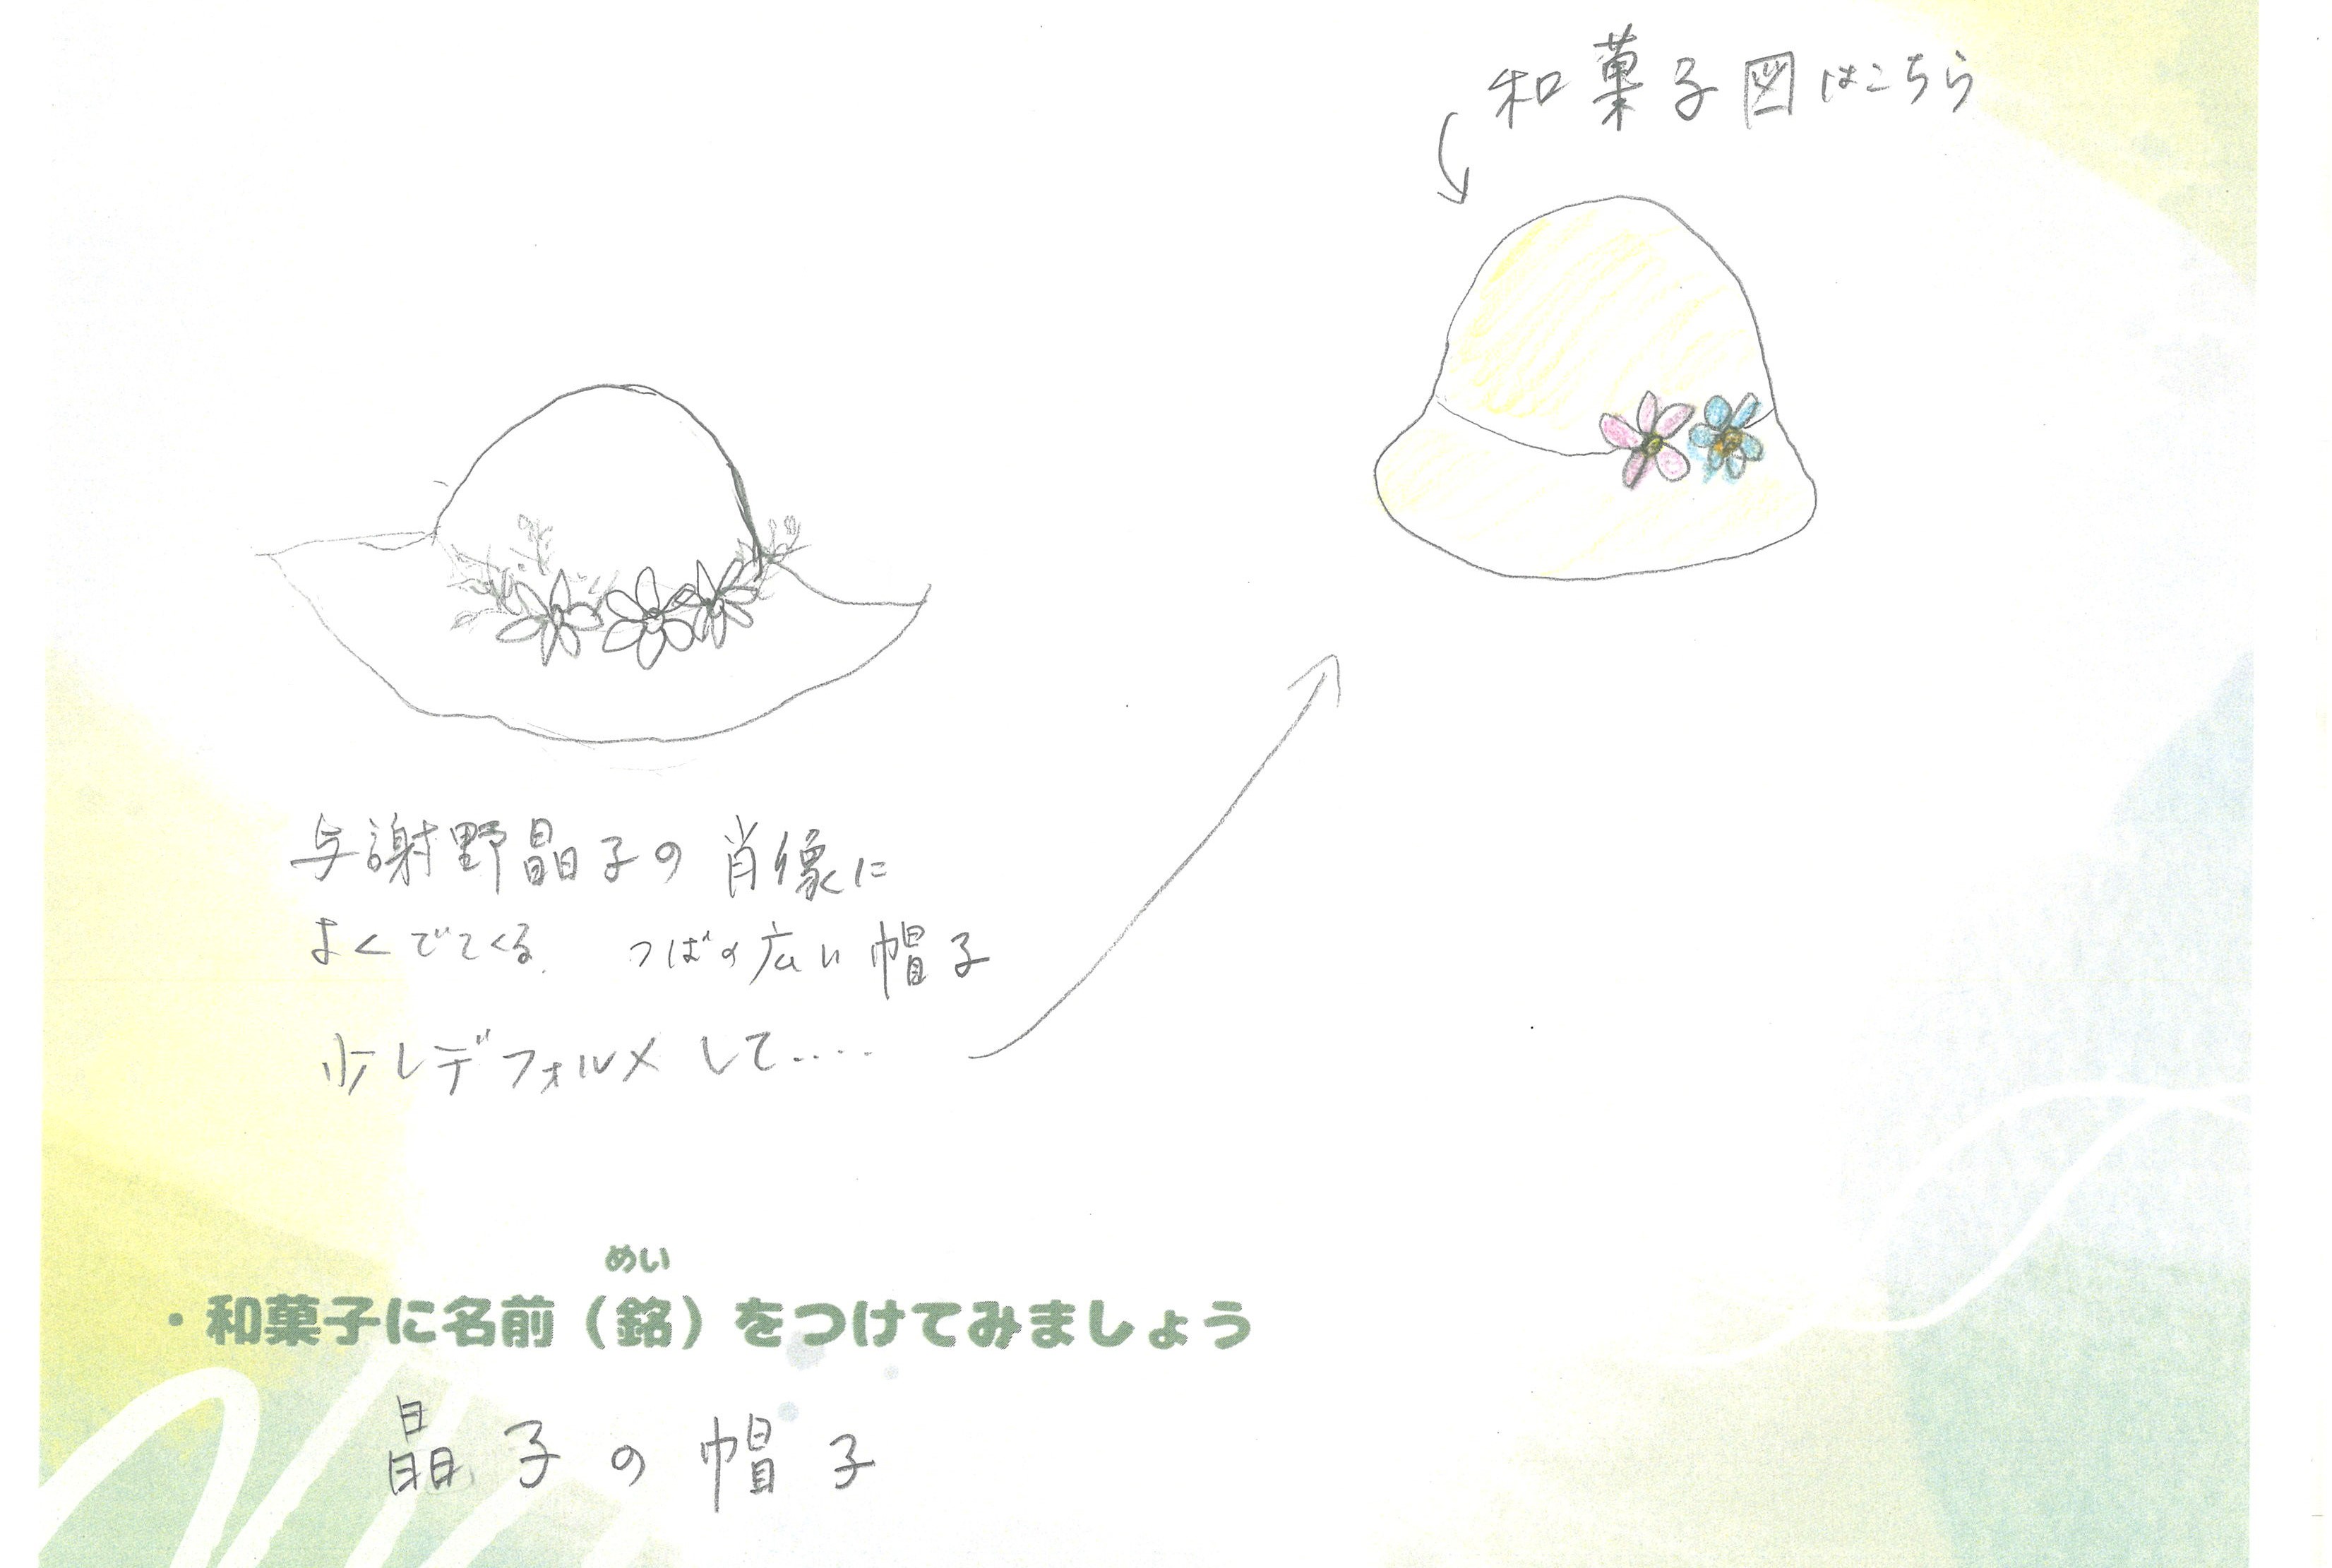 和菓子図はこちら
与謝野晶子の肖像に
よくでてくる つばの広い帽子
少しデフォルメして.....
めい
・和菓子に名前（銘）をつけてみましょう
晶子の帽子